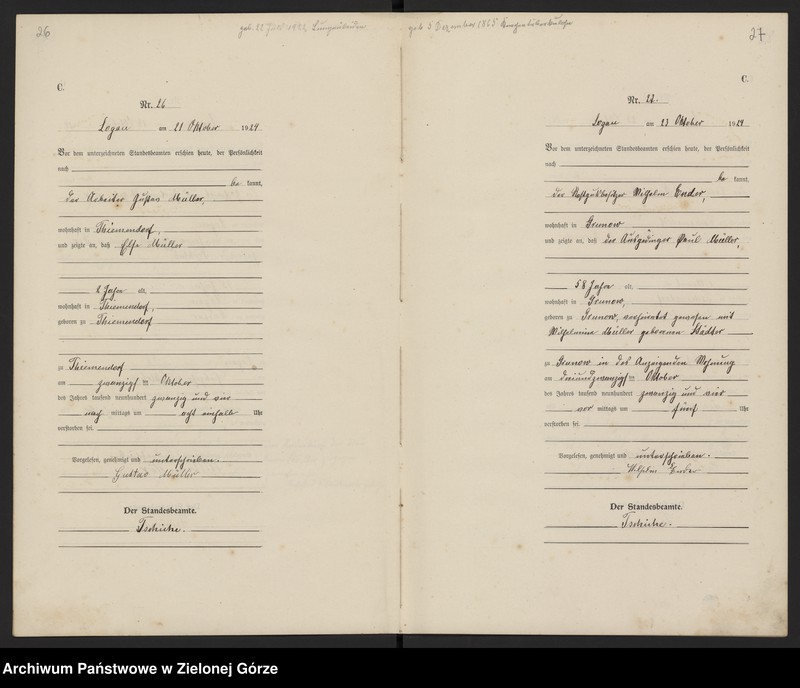 26
geb. 22 Juli
C.
Nr. 26
Logau am 21 Oktober 1924
Vor dem unterzeichneten Standesbeamten erschien heute, der Persönlichkeit
nach
be kannt,
der Arbeiter Gustav Müller,
wohnhaft in Thiemendorf,
und zeigte an, daß Else Müller
Jahre alt,
wohnhaft in Thiemendorf,
geboren zu Thiemendorf
zu Thiemendorf
am zwanzigsten Oktober
des Jahres tausend neunhundert zwanzig und vier
nach mittags um acht einhalb Uhr
verstorben sei.
Vorgelesen, genehmigt und unterschrieben.
Gustav Müller
Der Standesbeamte.
Tschirke.
27
geb. 5 Dezember 1865
C.
Nr. 27.
Logau am 23 Oktober 1924
Vor dem unterzeichneten Standesbeamten erschien heute, der Persönlichkeit
nach
be kannt,
der Restgutsbesitzer Wilhelm Ender,
wohnhaft in Grunow
und zeigte an, daß der Ausgedinger Paul Müller,
58 Jahre alt,
wohnhaft in Grunow,
geboren zu Grunow, verheiratet gewesen mit
Wilhelmine Müller geborenen Städter
zu Grunow in des Anzeigenden Wohnung
am dreiundzwanzigsten Oktober
des Jahres tausend neunhundert zwanzig und vier
vor mittags um fünf Uhr
verstorben sei.
Vorgelesen, genehmigt und unterschrieben.
Wilhelm Ender
Der Standesbeamte.
Tschirke.
Archiwum Państwowe w Zielonej Górze